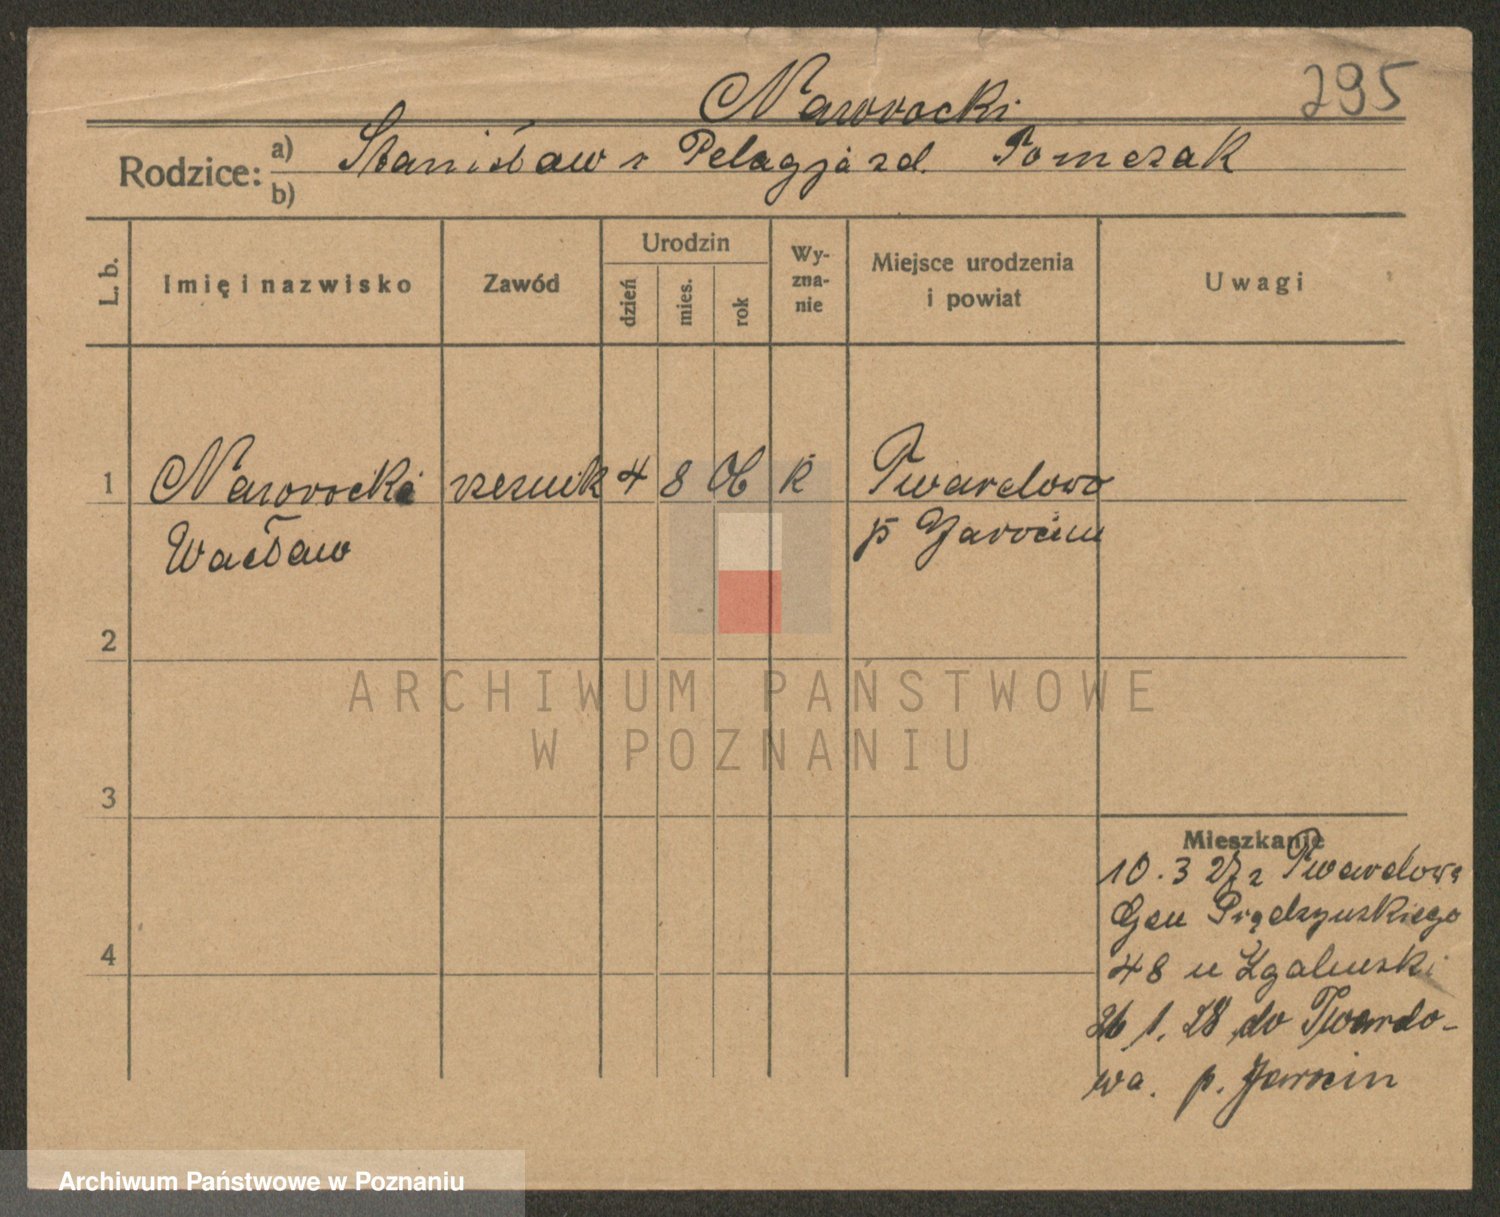 Nawrocki
295
Rodzice: a) b)
Stanisław i Pelagja zd. Tomczak
L. b.
Imię i nazwisko
Zawód
Urodzin
dzień
mies.
rok
Wy-
zna-
nie
Miejsce urodzenia
i powiat
Uwagi
1 Nawrocki rzeźnik 4 8 06 k Twardowo
Wacław p Jarocin
2
3
4
Mieszkanie
10. 3 27 z Twardowa
Gen Prądzyńskiego
48 u
26 1. 28 do Twardo-
wa. p. Jarocin
ARCHIWUM PAŃSTWOWE
W POZNANIU
Archiwum Państwowe w Poznaniu